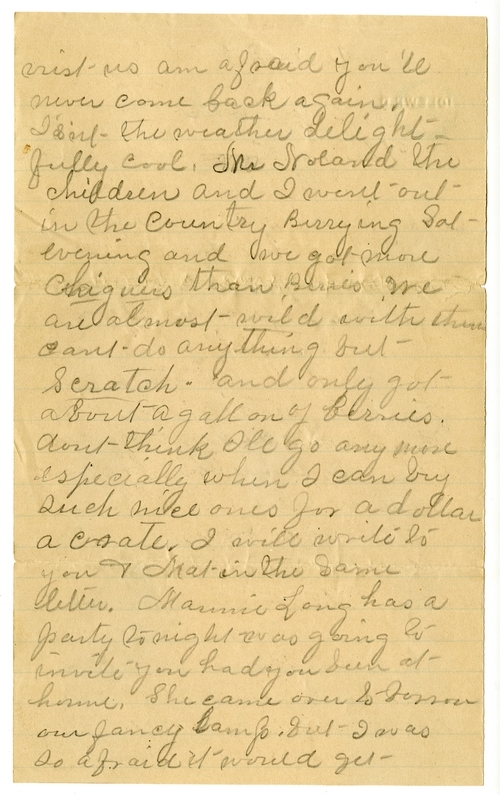 visit us am afraid you'll
never come back again.
Isn't the weather delight-
fully cool. Mr Noland the
children and I went out
in the country Berrying Sat-
evening and we got more
Chiguers than Berries we
are almost wild with them
cant do anything but
Scratch. and only got
about a gallon of berries.
dont think I'll go any more
especially when I can buy
such nice ones for a dollar
a crate. I will write to
you & Mat in the same
letter. Mannie Long has a
party to night was going to
invite you had you been at
home. She came over to borrow
our fancy lamp. but I was
so afraid it would get